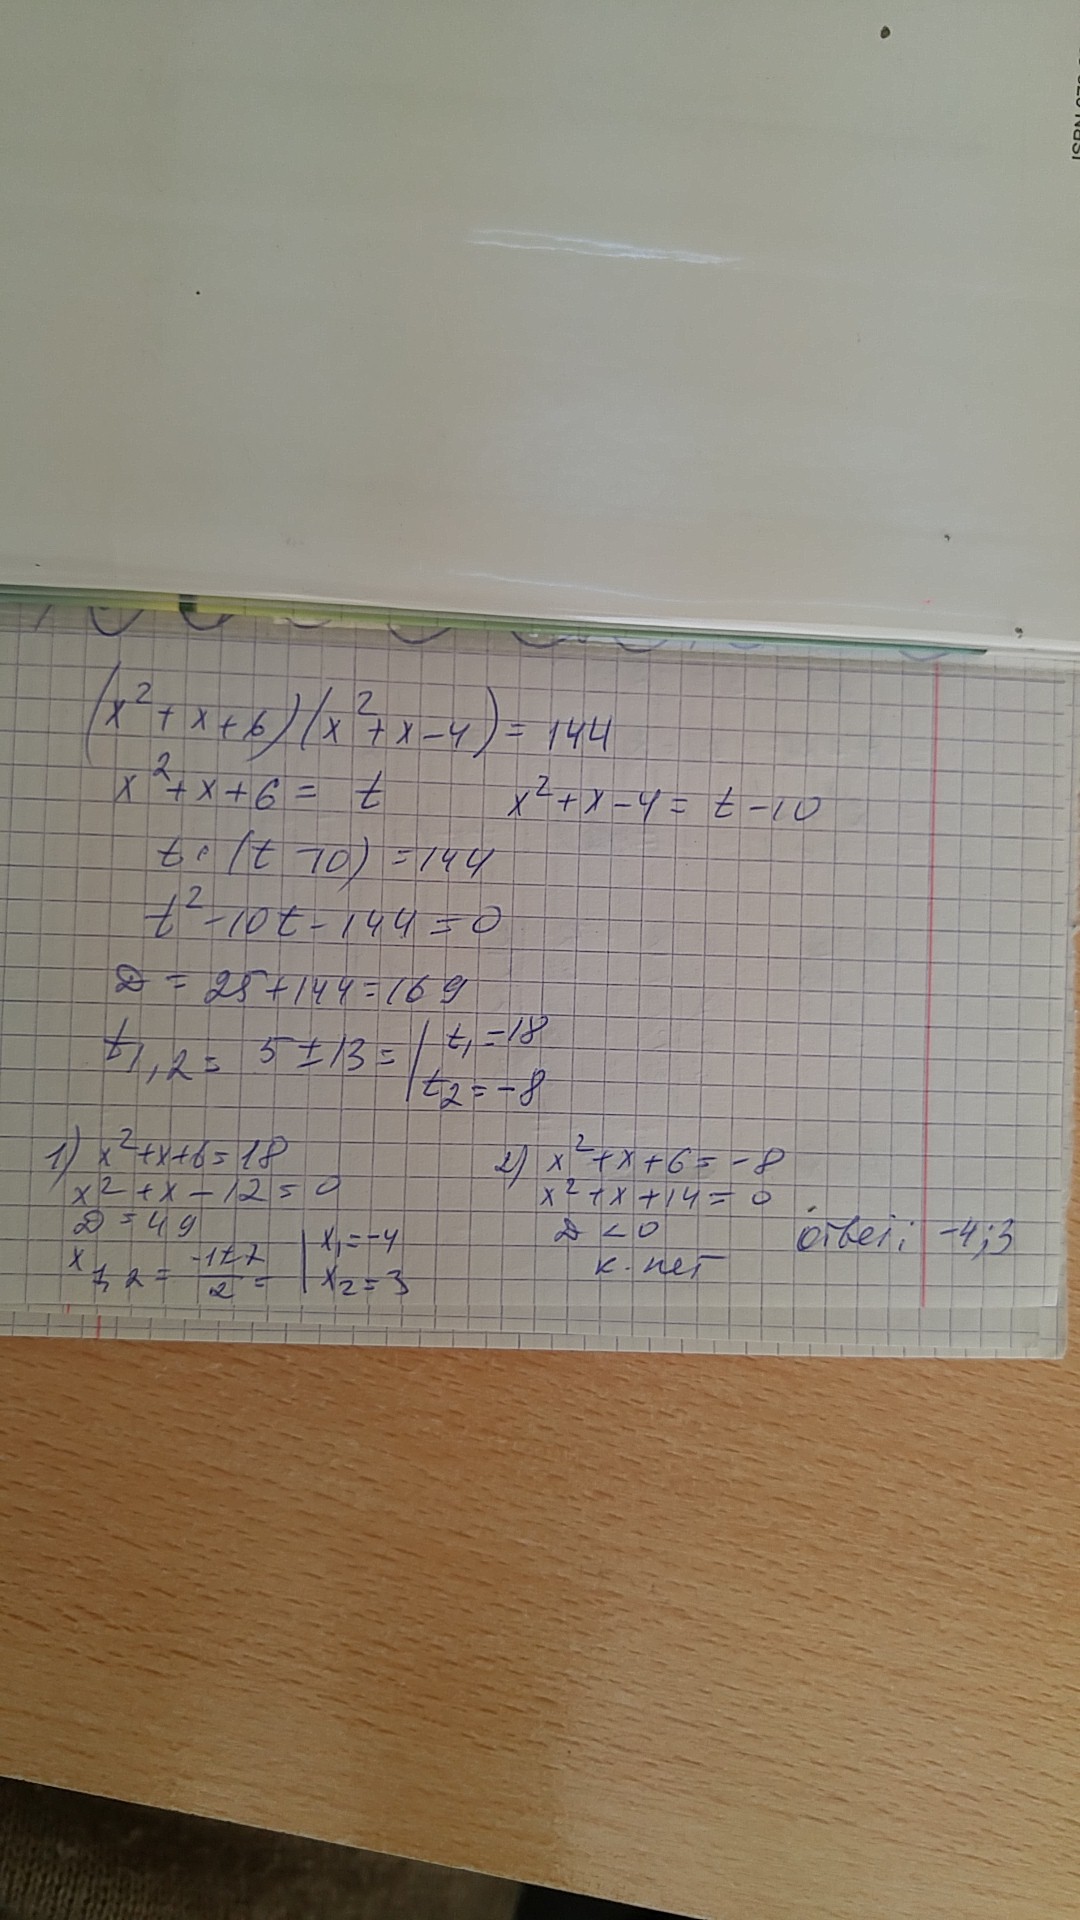 (x²+x+6)(x²+x-4)=144
x²+x+6= t x²+x-4= t-10
t·(t-10)=144
t²-10t-144=0
D = 25+144=169
t1,2= 5±13= | t1=18
t2=-8
1) x²+x+6=18
x²+x-12=0
D=49
x1,2= (-1±7)/2 = | x1=-4
x2=3
2) x²+x+6=-8
x²+x+14=0
D<0
к. нет
Ответ: -4;3